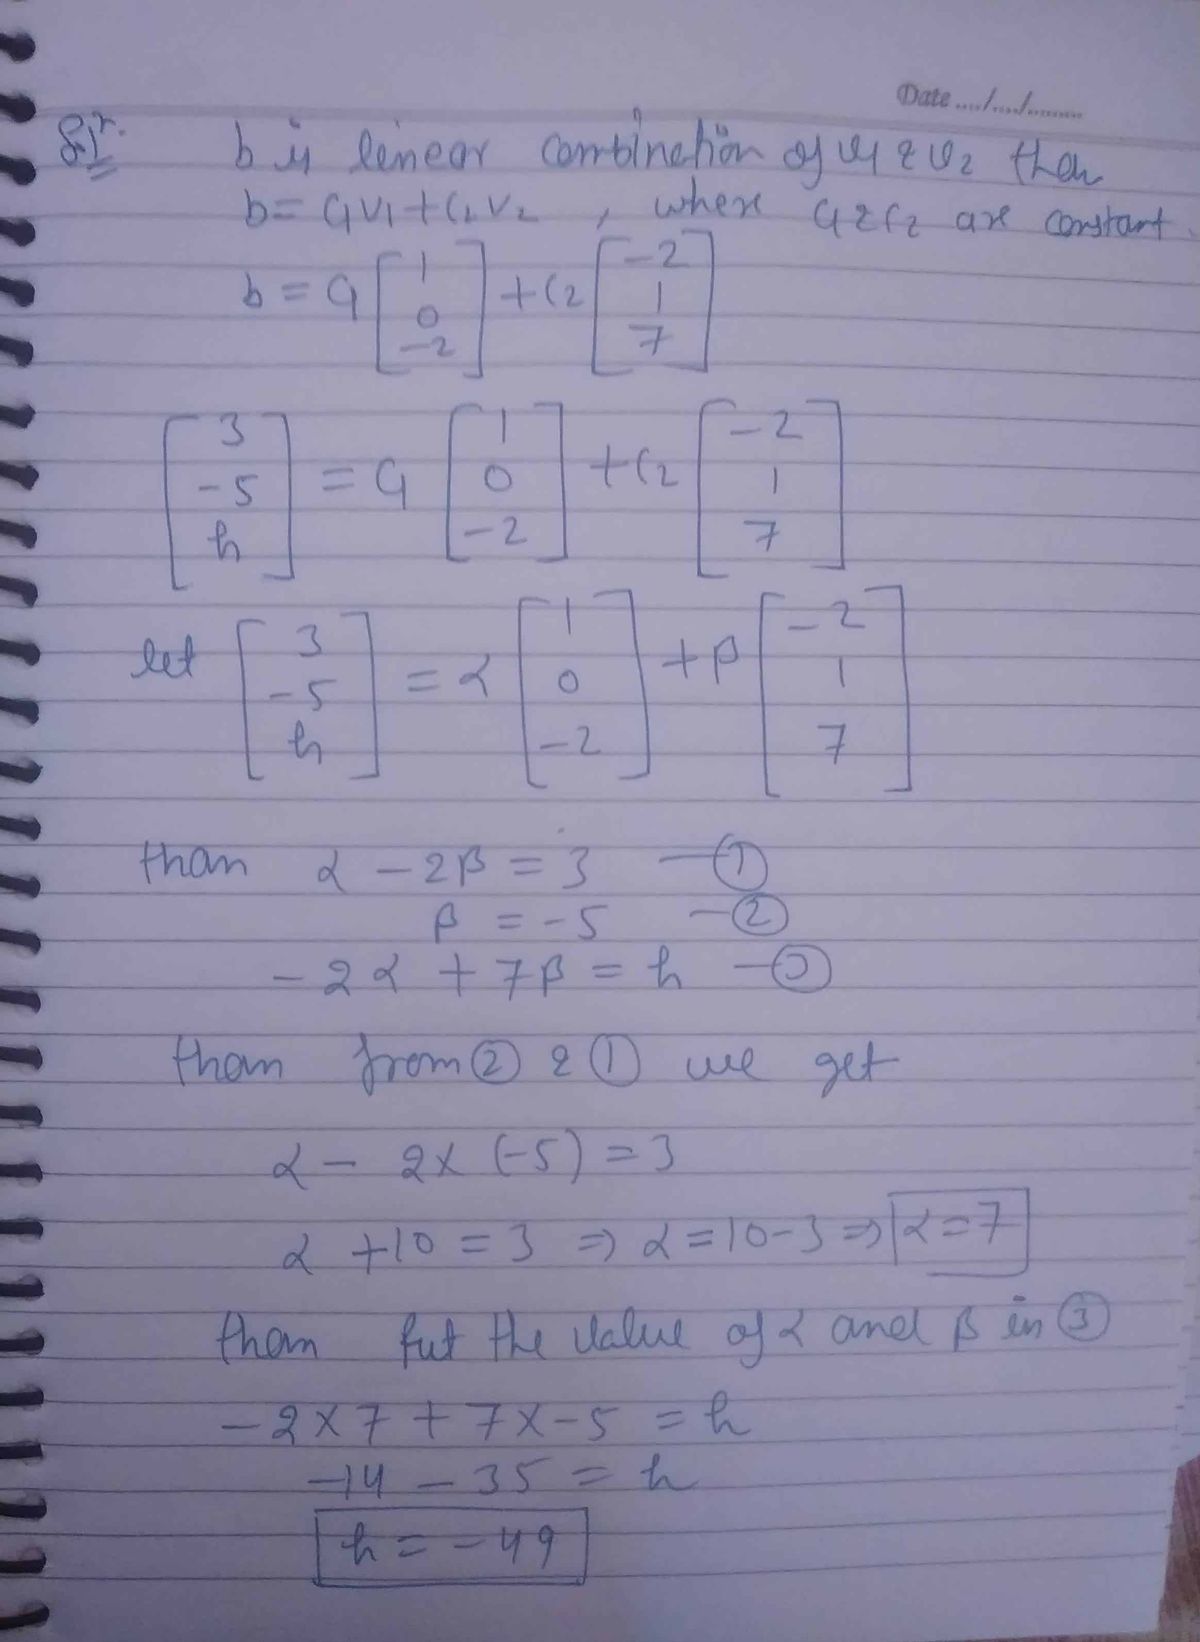 Date ..../..../........
Solⁿ. b is linear combination of v1 & v2 then
b = c1v1 + c2v2 , where c1 & c2 are constant.
b = c1 [1 0 -2] + c2 [-2 1 7]
[3 -5 h] = c1 [1 0 -2] + c2 [-2 1 7]
let [3 -5 h] = α [1 0 -2] + β [-2 1 7]
than α - 2β = 3 —①
β = -5 —②
-2α + 7β = h —③
than from ② & ① we get
α - 2× (-5) = 3
α + 10 = 3 ⇒ α = 10-3 ⇒ α = 7
than put the value of α and β in ③
-2×7 + 7×-5 = h
-14 - 35 = h
h = -49